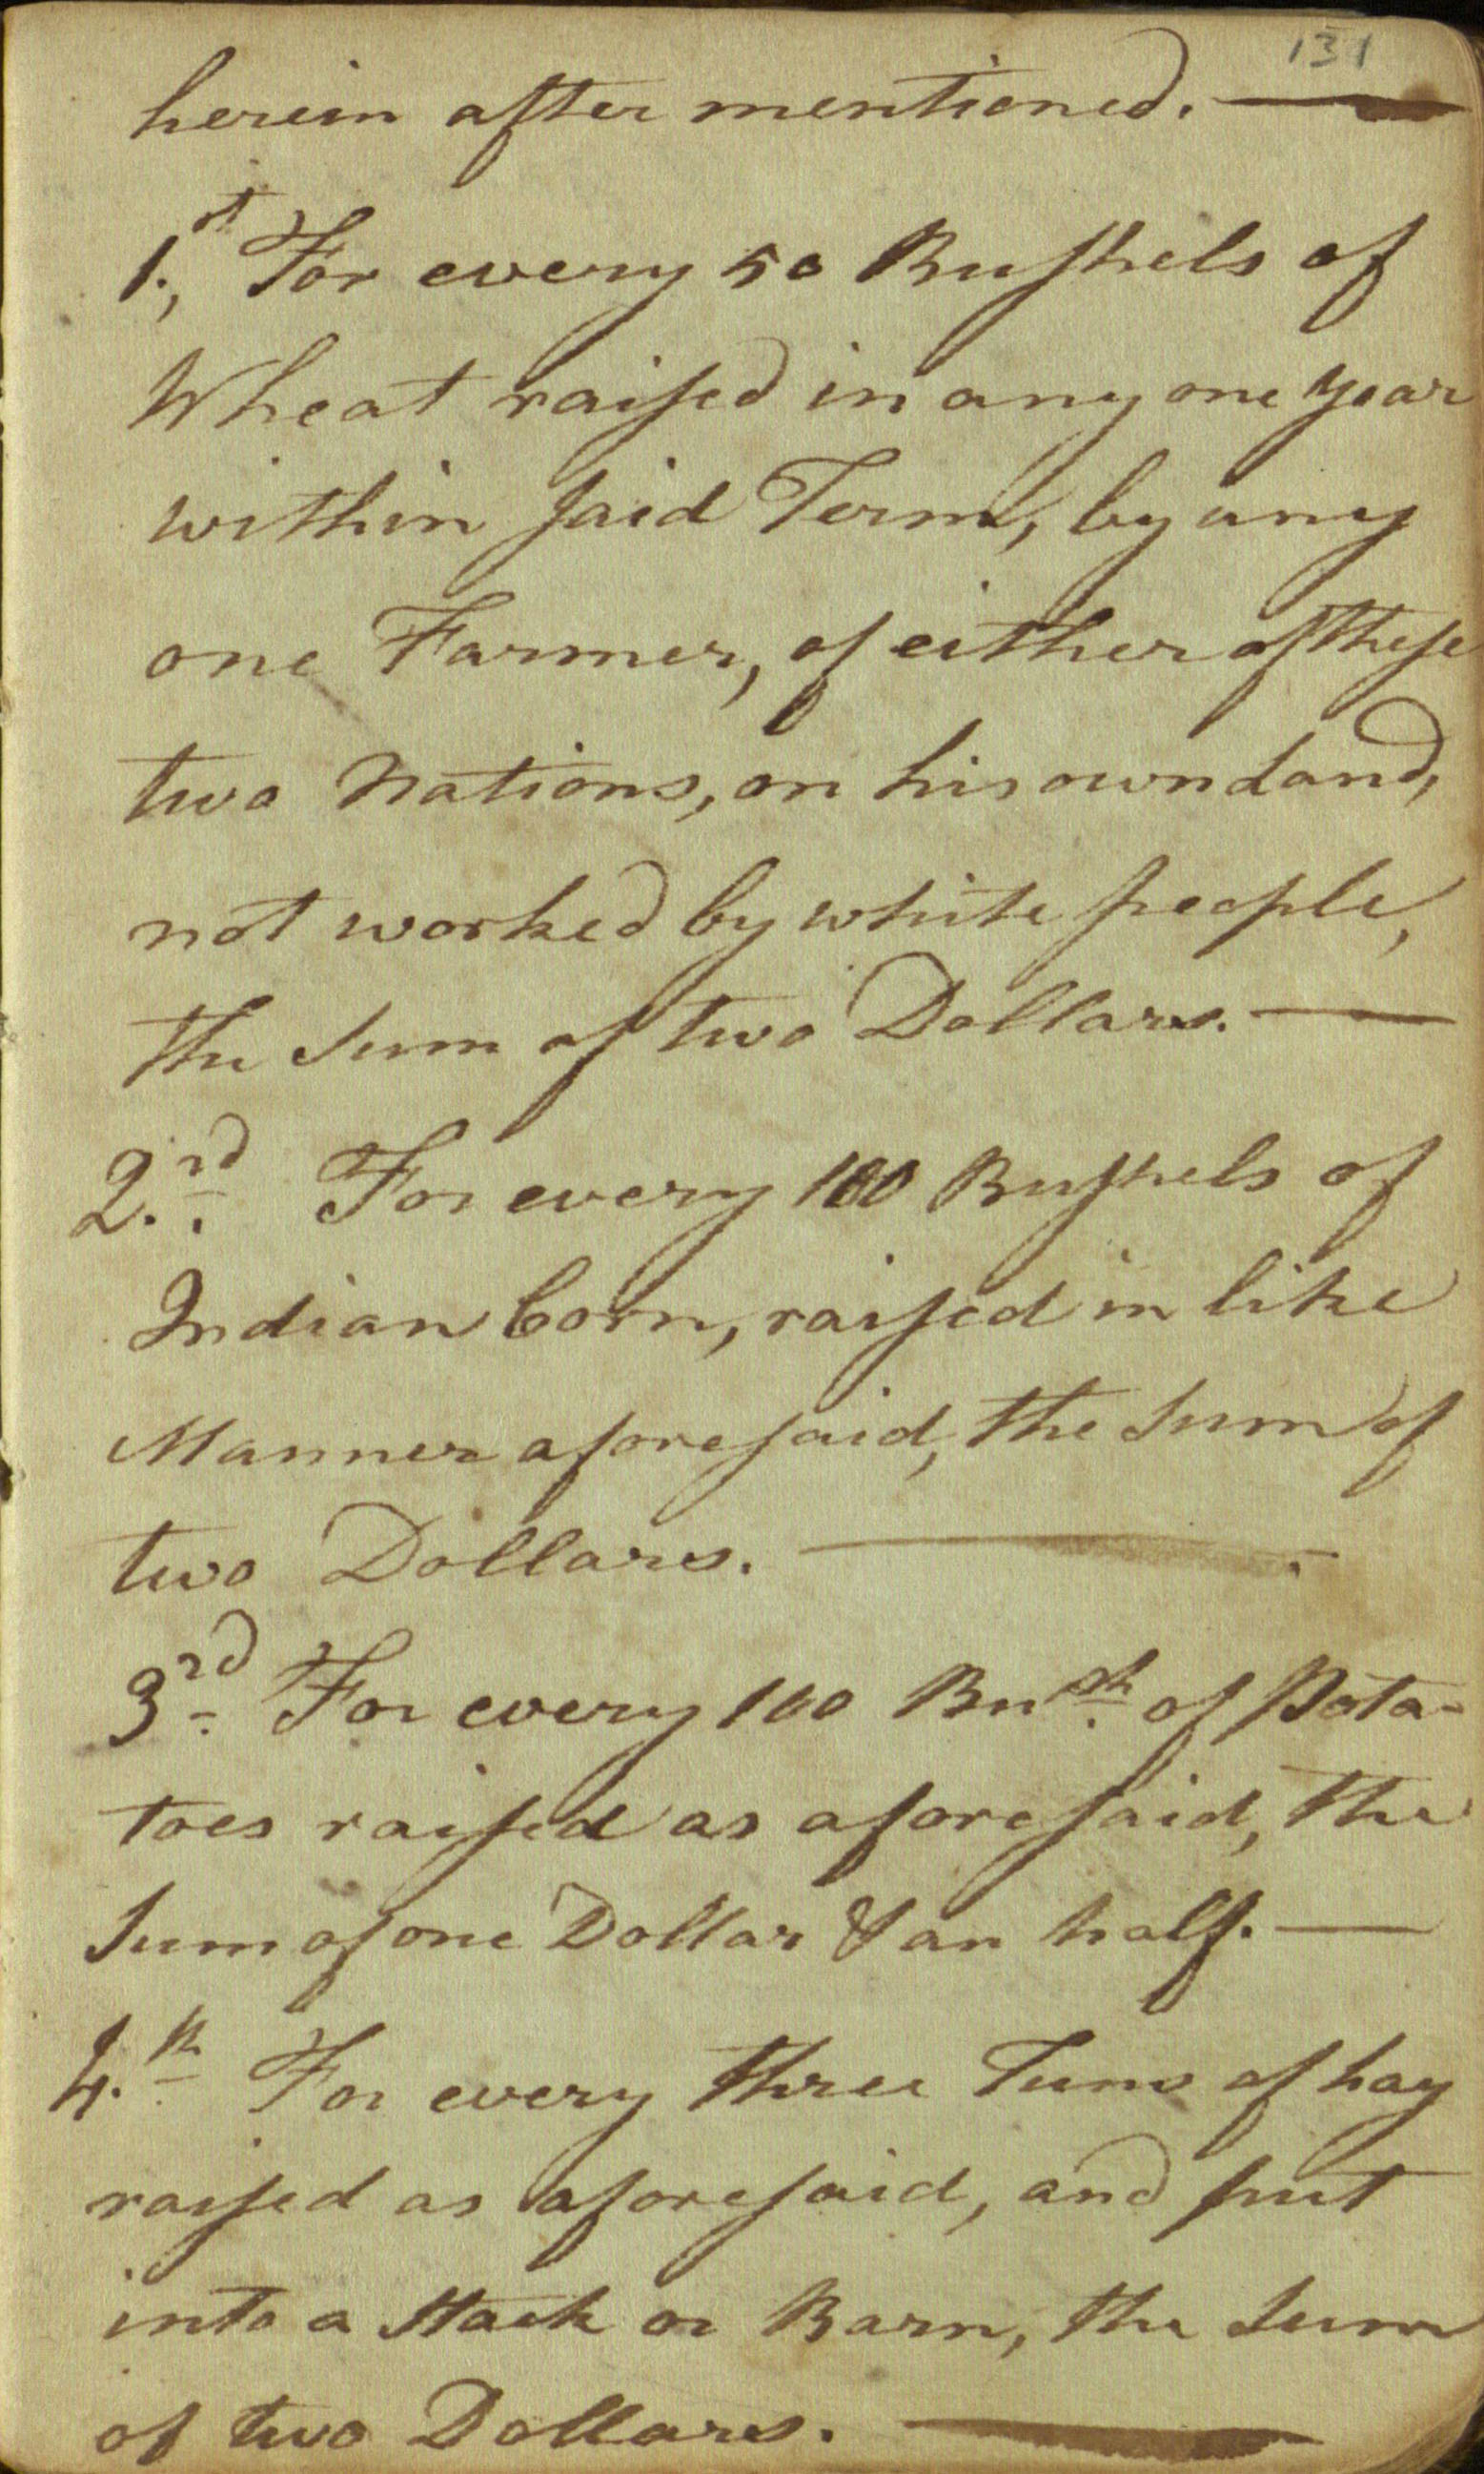 131
herein after mentioned. —
1.st, For every 50 Bushels of
Wheat raised in any one year
within said Term, by any
one Farmer, of either of these
two Nations, on his own Land,
not worked by white people,
the Sum of two Dollars. —
2.rd For every 100 Bushels of
Indian Corn, raised in like
Manner aforesaid, the Sum of
two Dollars. —
3rd For every 100 Bush of Pota-
toes raised as aforesaid, the
Sum of one Dollar & an half. —
4.th For every three Tuns of hay
raised as aforesaid, and put
into a Stack or Barn, the Sum
of two Dollars. —